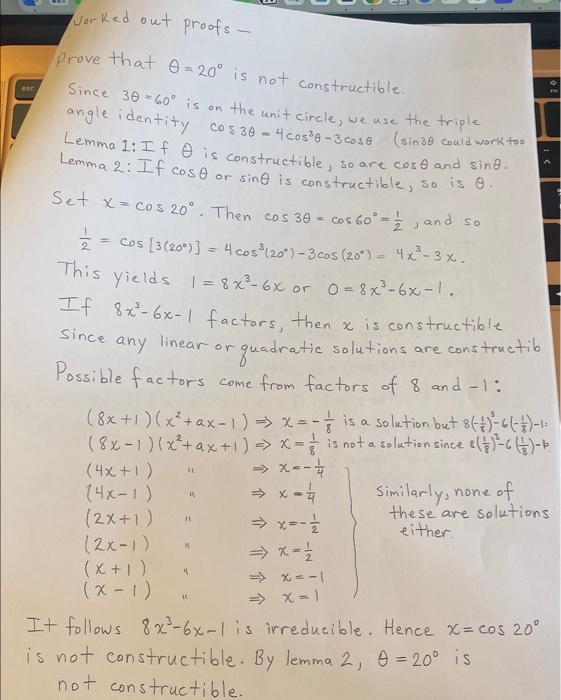 Worked out proofs —
Prove that θ = 20° is not constructible.
Since 3θ = 60° is on the unit circle, we use the triple
angle identity cos 3θ = 4cos³θ - 3cosθ (sin3θ could work too
Lemma 1: If θ is constructible, so are cosθ and sinθ.
Lemma 2: If cosθ or sinθ is constructible, so is θ.
Set x = cos 20°. Then cos 3θ = cos 60° = 1/2, and so
1/2 = cos [3(20°)] = 4 cos³(20°) - 3cos(20°) = 4x³ - 3x.
This yields 1 = 8x³ - 6x or 0 = 8x³ - 6x - 1.
If 8x³ - 6x - 1 factors, then x is constructible
since any linear or quadratic solutions are constructib
Possible factors come from factors of 8 and -1:
(8x+1)(x²+ax-1) ⇒ x = -1/8 is a solution but 8(-1/8)³-6(-1/8)-1=
(8x-1)(x²+ax+1) ⇒ x = 1/8 is not a solution since 8(1/8)³-6(1/8)-1=
(4x+1) " ⇒ x = -1/4
(4x-1) " ⇒ x = 1/4 Similarly, none of
(2x+1) " ⇒ x = -1/2 these are solutions
(2x-1) " ⇒ x = 1/2 either.
(x+1) " ⇒ x = -1
(x-1) " ⇒ x = 1
It follows 8x³-6x-1 is irreducible. Hence x = cos 20°
is not constructible. By lemma 2, θ = 20° is
not constructible.
esc